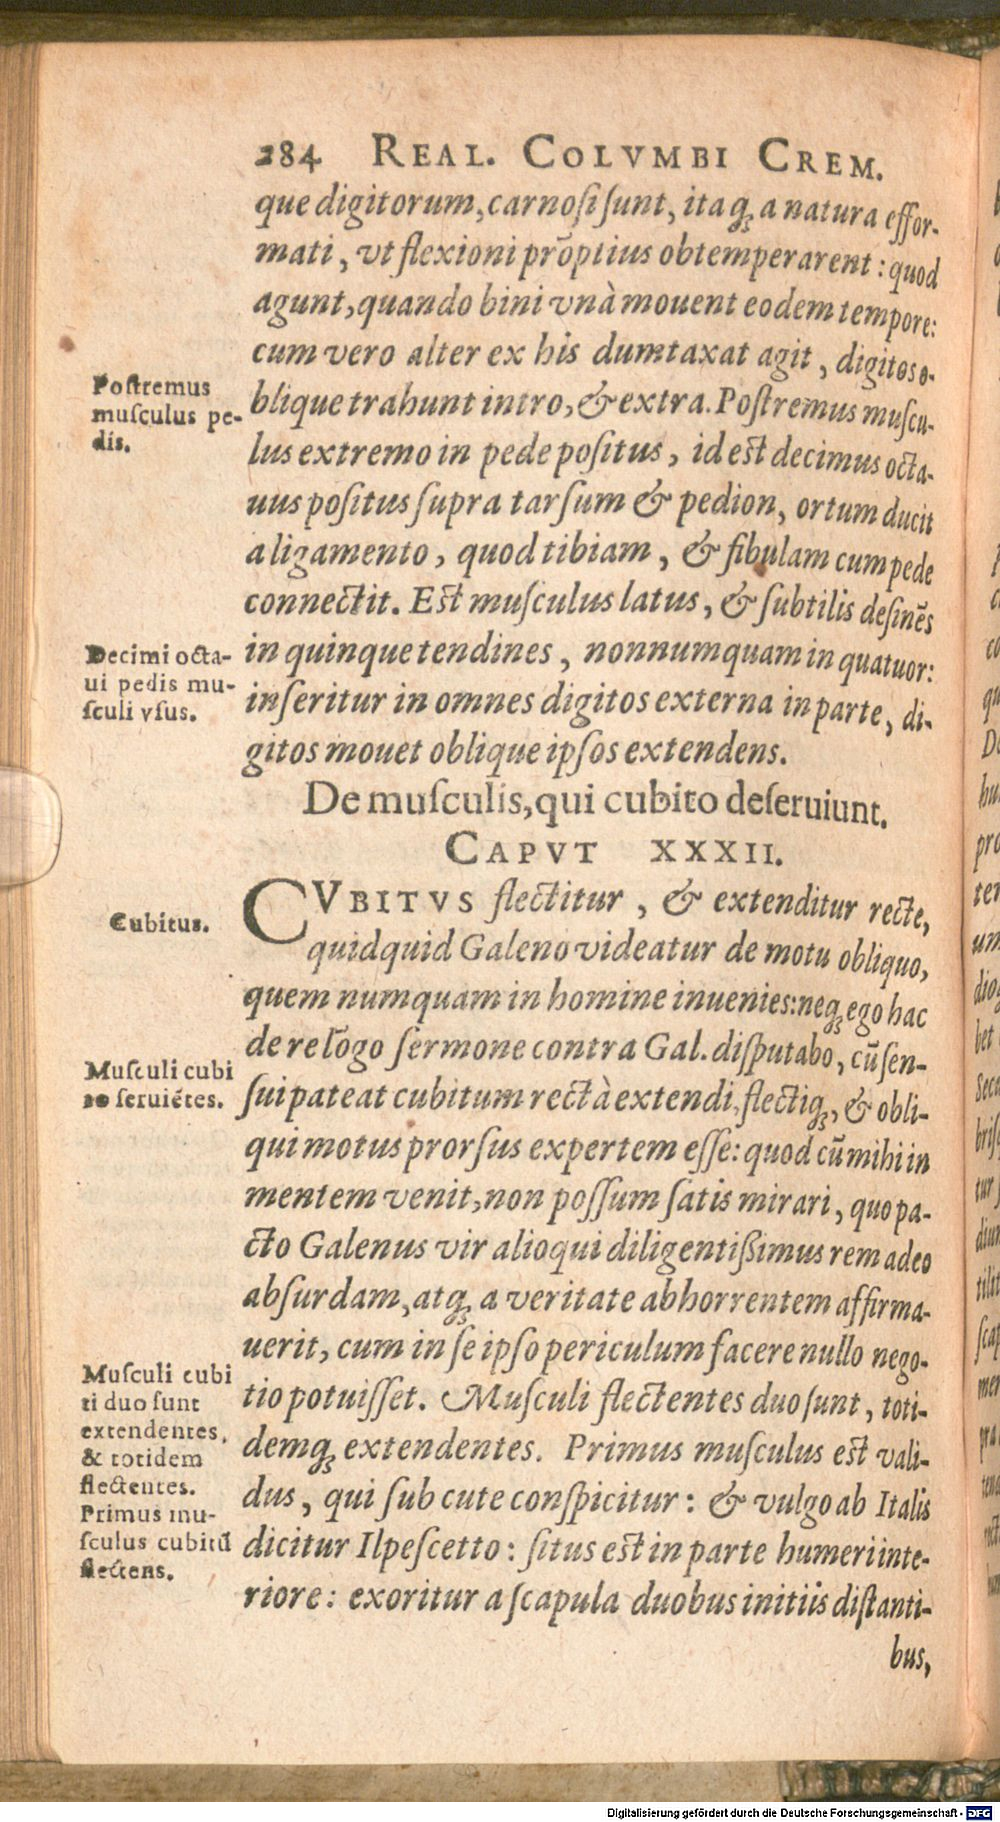 284 REAL. COLVMBI CREM.
que digitorum, carnosi sunt, itaq; a natura effor-
mati, vt flexioni prõptius obtemperarent: quod
agunt, quando bini vnà mouent eodem tempore:
cum vero alter ex his dumtaxat agit, digitos o-
blique trahunt intro, & extra. Postremus muscu-
lus extremo in pede positus, id est decimus octa-
uus positus supra tarsum & pedion, ortum ducit
a ligamento, quod tibiam, & fibulam cum pede
connectit. Est musculus latus, & subtilis desinẽs
in quinque tendines, nonnumquam in quatuor:
inseritur in omnes digitos externa in parte, di-
gitos mouet oblique ipsos extendens.
Postremus
musculus pe-
dis.
Decimi octa-
ui pedis mu-
sculi vsus.
De musculis, qui cubito deseruiunt.
CAPVT XXXII.
CVBITVS flectitur, & extenditur recte,
quidquid Galeno videatur de motu obliquo,
quem numquam in homine inuenies: neq; ego hac
de re lõgo sermone contra Gal. disputabo, cũ sen-
sui pateat cubitum rectà extendi, flectiq;, & obli-
qui motus prorsus expertem esse: quod cũ mihi in
mentem venit, non possum satis mirari, quo pa-
cto Galenus vir alioqui diligentißimus rem adeo
absurdam, atq; a veritate abhorrentem affirma-
uerit, cum in se ipso periculum facere nullo nego-
tio potuisset. Musculi flectentes duo sunt, toti-
demq; extendentes. Primus musculus est vali-
dus, qui sub cute conspicitur: & vulgo ab Italis
dicitur Il pescetto: situs est in parte humeri inte-
riore: exoritur a scapula duobus initiis distanti-
bus,
Cubitus.
Musculi cubi
to seruiẽtes.
Musculi cubi
ti duo sunt
extendentes,
& totidem
flectentes.
Primus mu-
sculus cubitũ
flectens.
Digitalisierung gefördert durch die Deutsche Forschungsgemeinschaft - DFG